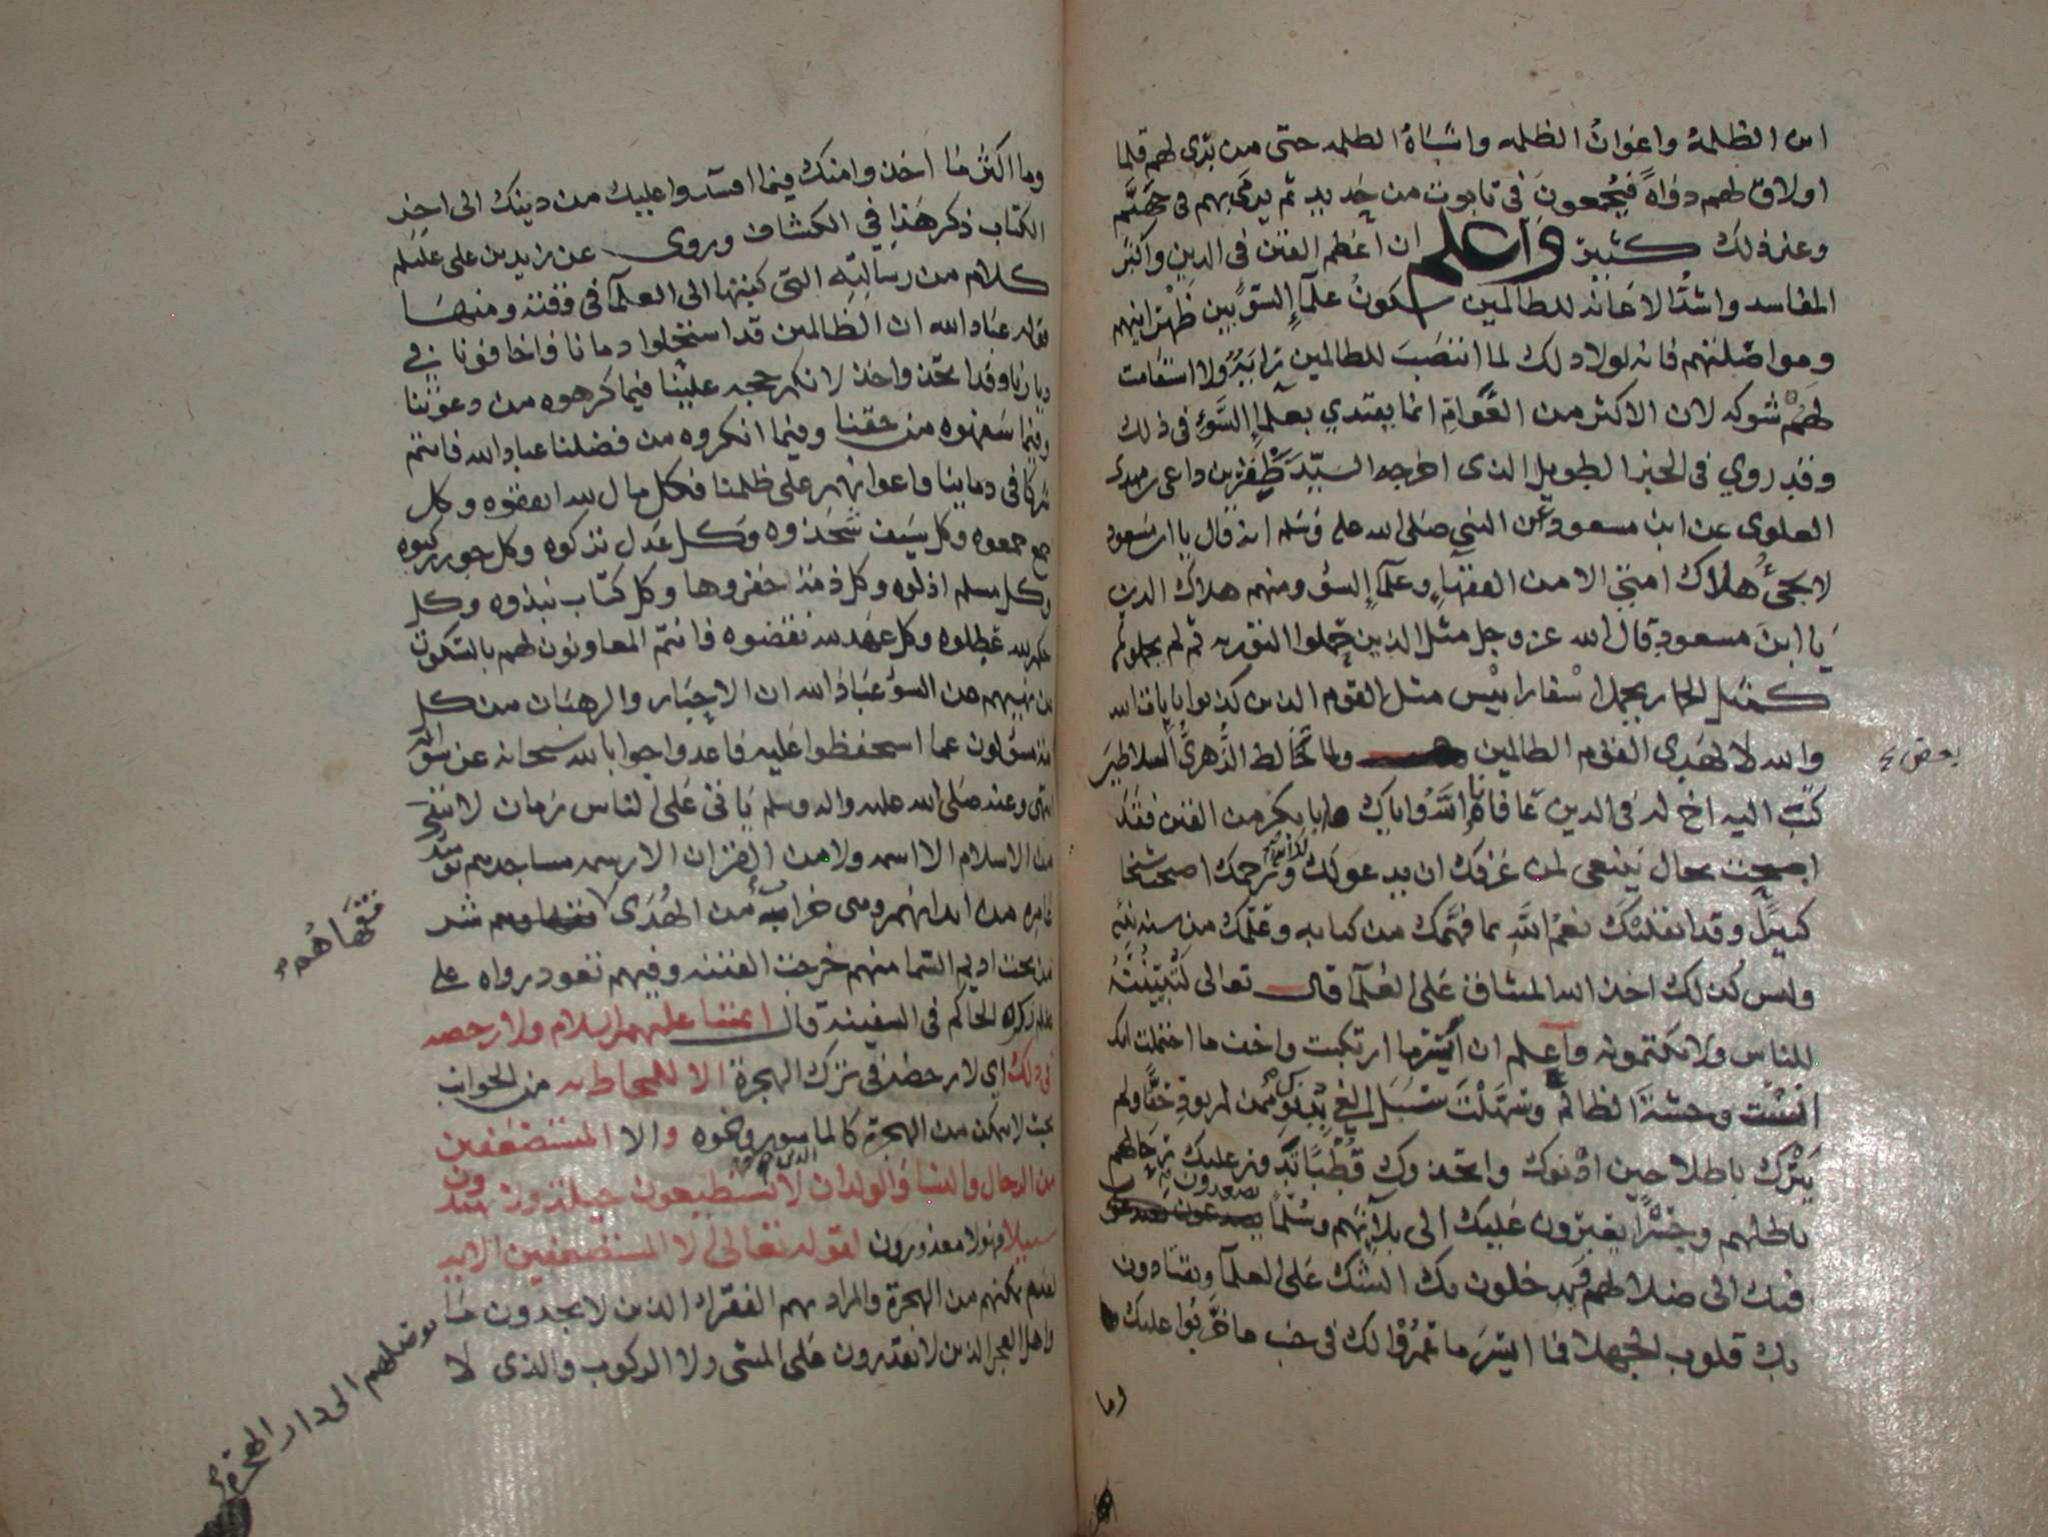 اين الظلمة واعوان الظلمه واشباه الظلمه حتى من برى لهم قلما
اولاق لهم دواةً فيُجمعون في تابوت من حديد ثم يرمى بهم في جهنّم
وغير ذلك كثير واعلم ان أعظم الفتن في الدين واكبر
المفاسد واشدّ الاعانه للظالمين سكونُ علمآءِ السؤ بين ظهرانيهم
ومواصلتهم فانه لولا ذلك لما انتصَبَ للظالمين رايةٌ ولا استقامت
لهم شوكه لان الاكثر من العَوامِّ انما يقتدي بعلمآءِ السَّوءِ في ذلك
وقد روي في الخبر الطويل الذى اخرجه السيّد ظَفْر بن داعى بن مهدى
العلوى عن ابن مسعود عن النبي صلى الله عليه وسلم انه قال يا ابن مسعود
لا يجيءُ هلاك امتي الا من الفقهآءِ وعلمآءِ السؤ ومنهم هلاك الدين
يا ابنَ مسعود قال الله عز وجل مثل الذين حملوا التوريه ثم لم يحملوها
كمثل الحمار يحمل اسْفارا بئْس مثل القوم الذين كذبوا بايات الله
والله لا يهدى القوم الظالمين ولما خَالط الزُّهريُّ السلاطينَ
بعض
كتب اليه اخ له في الدين عافانا اللهُ واياك ابا بكر من الفتن فقد
اصبحت بحال ينبغى لمن عرفك ان يدعو لك الله ويرحمك اصبحت شيخا
كبيرًا وقد اثقلتك نعمُ اللهِ بما فهّمك من كتابه وعلّمك من سنه نبيّه
وليس كذلك اخذ الله الميثاق على العُلمآء قال تعالى لتُبَيّنُنَّهُ
للناس ولا تكتمونه واعلم ان أيسَر ما ارتكبت واخف ما احتملت انك
انسْت وحشةَ الظالم وسَهّلْتَ سبيل الغيّ بدنوّك ممن لم يؤدِ حقًّا ولم
يَترُك باطلا حين ادْنوك واتخذوك قُطْبًا تدور عليك رحا
باطلهم وجسْرًا يعبرون عليك الى بلآئهم وسُلّمًا يصعدون
فيك الى ضلالهم يدخلون بك الشك على العلمآء ويقتادون
بك قلوب الجهلا فما ايسَر ما عمرُوْا لك في جنب ما خرّبُوا عليك
اما
وما اكثر مَا اخذوا منك فيما افسَدوا عليك من دينك الى اخِرِ
الكتاب ذكر هَذا فِي الكشاف وروى عن زيد بن على عليلم
كلام من رسالتِه التى كتبها الى العلمآ في وقته ومنهَا
قوله عباد الله ان الظالمين قد استحلوا دمانا واخافونا في
ديارنا وقد اتخذوا خذلانكم حجه علينا فيما كرهوه من دعوتنا
وفيما سَفهوه من حقنا وفيما انكروه من فضلنا عباد الله فانتم
شركا في دماينا واعوانهم على ظلمنا فكل مال لله انفقوه وكل
جمع جمعوه وكل سَيف شَحَذوه وكل عَدل تركوه وكل جور ركبوه
وكل مسلم اذلوه وكل ذمه اخفروها وكل كتاب نبذوه وكل
حكم لله عَطلوه وكل عهد لله نقضوه فانتم المعاونون لهم بالسكوت
عن نهيهم عن السوءِ عباد الله ان الاحبَار والرهبَان من كل
امه مسؤلون عما استحفظوا عَليه فاعدوا جوابا لله سبحانه عن سؤاله
انتهى وعنه صَلى الله عليه واله وسلم يَاتى عَلى الناس زمان لا يبقى
من الاسلام الا اسمه ولا من القران الا رسمه مساجدهم يومئذ
عامره من ابدانهم وهى خرابهٌ من الهُدَى شر
فقهَاهُم صح
من تحت اديم السّما منهم خرجت الفتنه وفيهم تعود رواه على
عليلم ذكره الحاكم في السفينه قال ايمتنا عليهم السلام ولا رخصه
في ذلك اي لا رخصه في ترك الهجرة الا للمحاط به من الجوانب
بحيث لا يمكن من الهجرة كالماسور ونحوه والا المستضعَفين
من الرجال والنسآ والولدان الذين لا يستطيعون حيله ولا يهتدون
سبيلا فهولا معذورون لقوله تعالى الا المستضعفين الايه
لعدم تمكنهم من الهجرة والمراد بهم الفقراء الذين لا يجدون مَا
يوصلهم الى دار الهجرة صح
واهل العجز الذين لا يقدرون على المشى ولا الركوب والذى لا